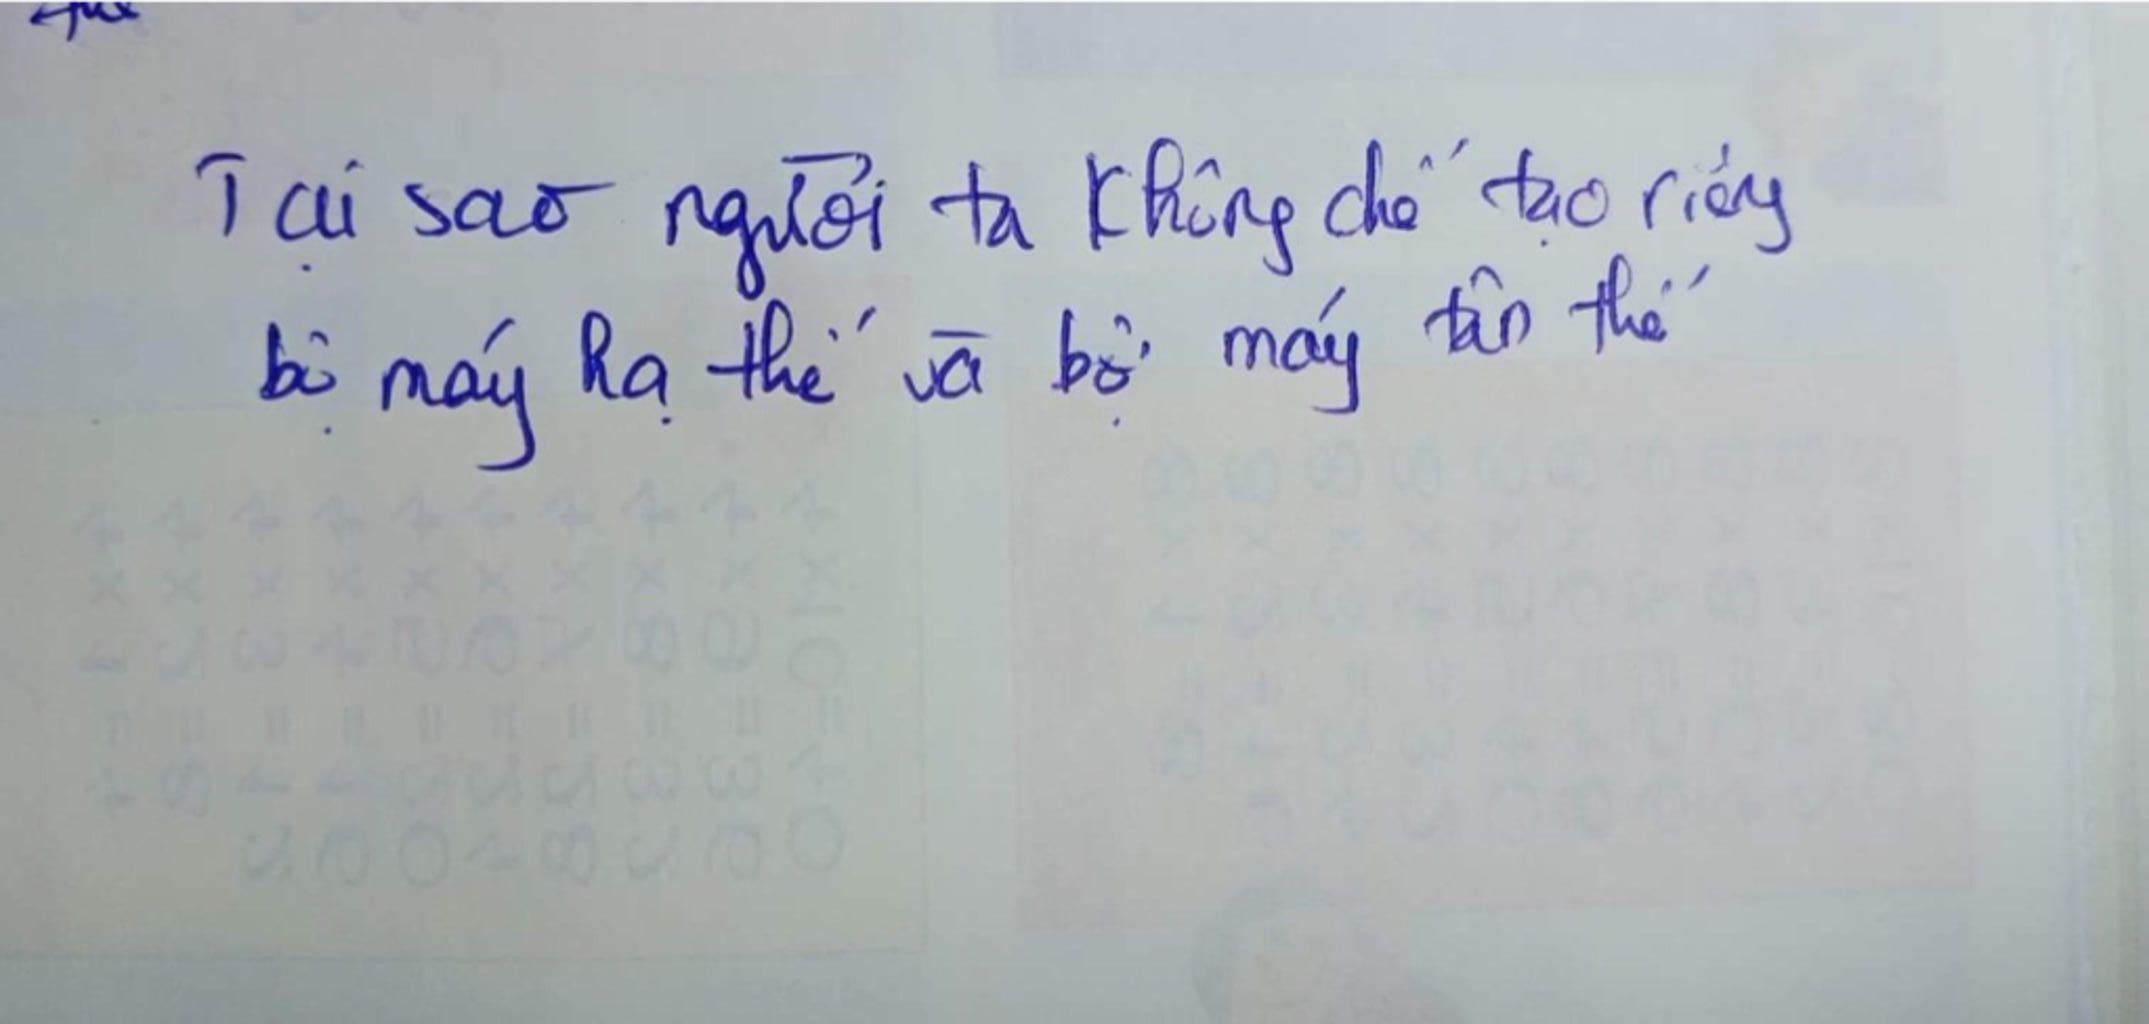 Tại sao người ta không chế tạo riêng
bộ máy hạ thế và bộ máy tân thế